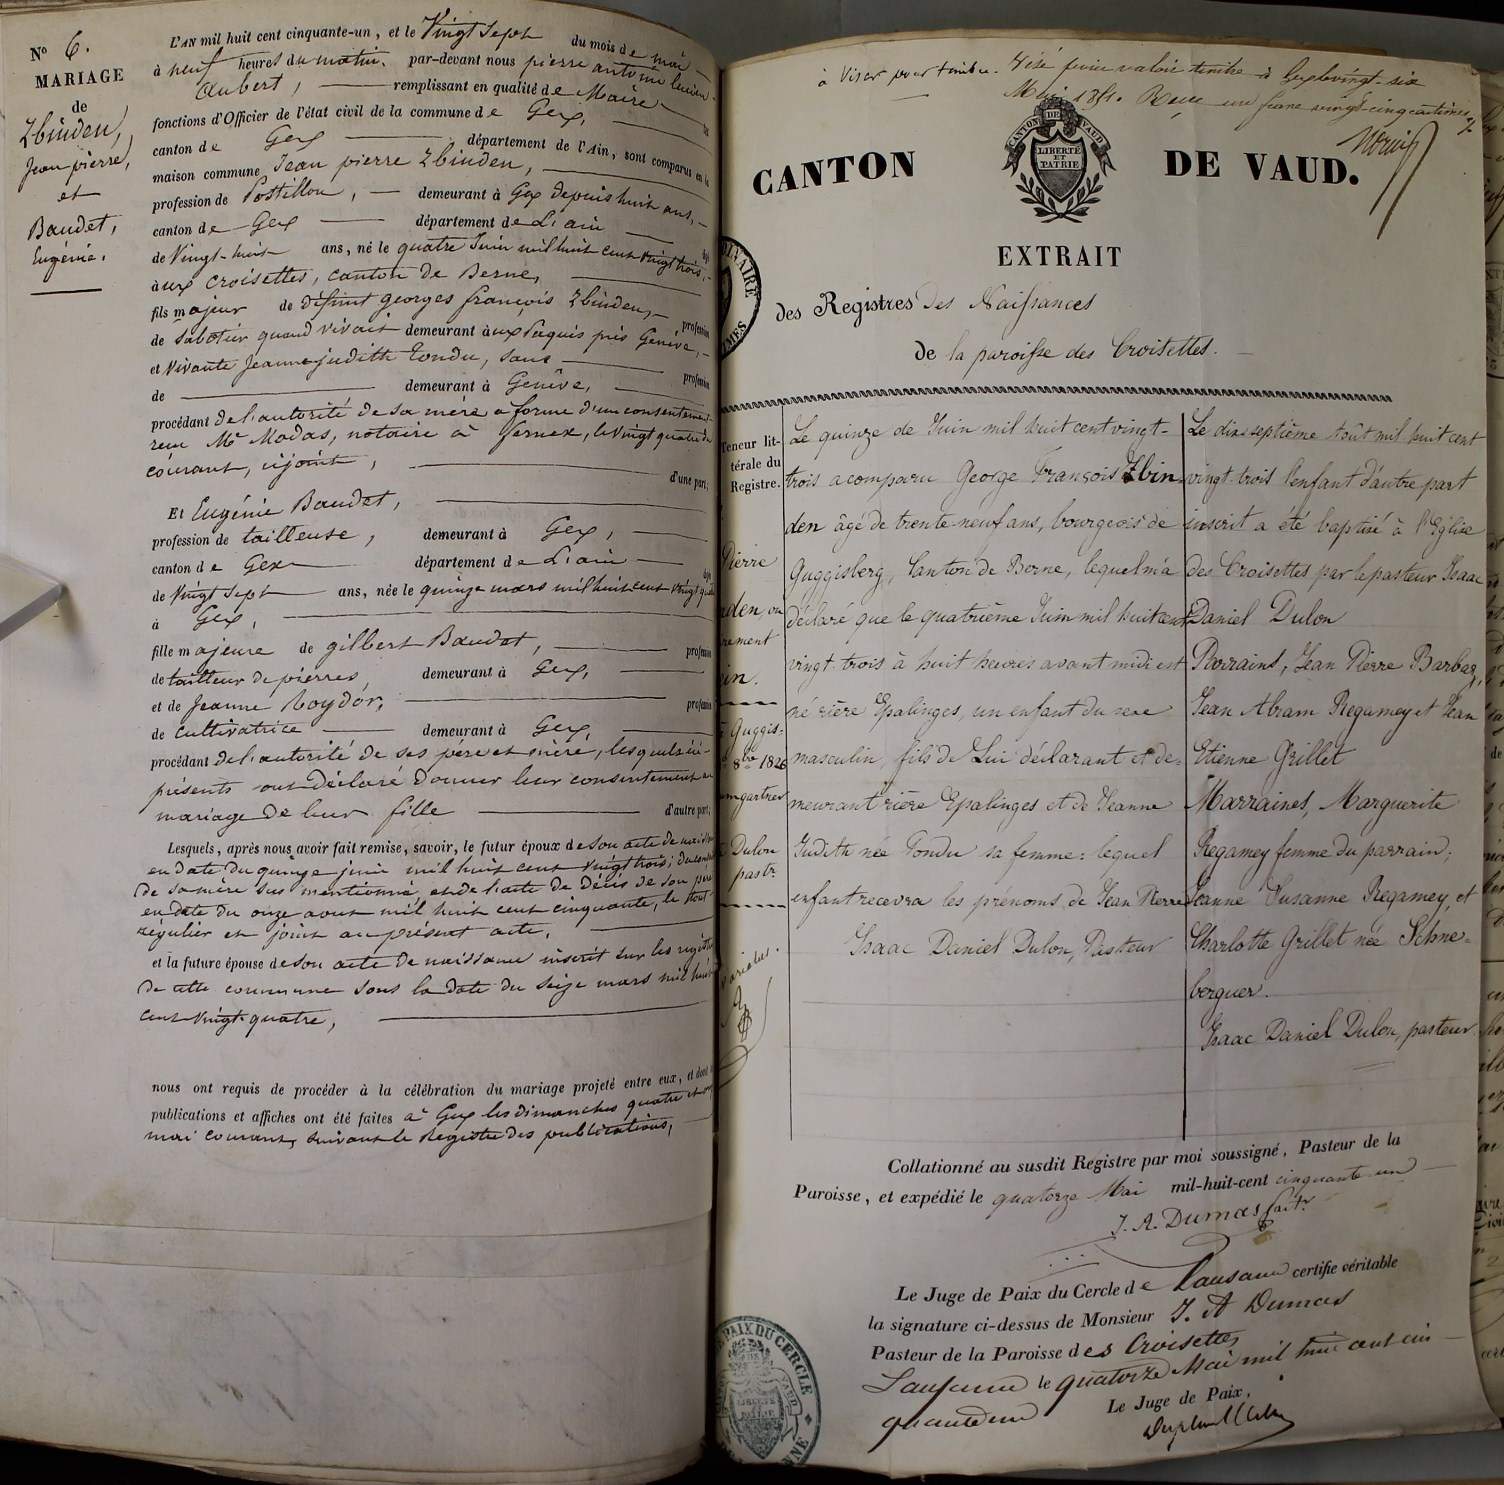 N° 6.
MARIAGE
de
Zbinden,
Jean pierre,
et
Baudet,
Eugénie.
L'AN mil huit cent cinquante-un, et le Vingt Sept du mois de mai
à neuf heures du matin, par-devant nous pierre antoine lucien
Aubert, remplissant en qualité de Maire
fonctions d'Officier de l'état civil de la commune de Gex,
canton de Gex département de l'Ain, sont comparus en la
maison commune Jean pierre Zbinden,
profession de Postillon, demeurant à Gex depuis huit ans,
canton de Gex département de L'ain
de Vingt-huit ans, né le quatre Juin mil huit cent vingt trois,
àux Croisettes, canton de Berne,
fils majeur de défunt georges françois Zbinden, profession
de Sabotier quand vivait demeurant àux Paquis près Genève,
et Vivante Jeanne judith Tondu, sans profession
de demeurant à Genève,
procédant de l'autorité de sa mère a forme d'un consentement
reçu Me Modas, notaire à Fernex, le vingt quatre du
courant, cijoint, d'une part;
Et Eugénie Baudet,
profession de tailleuse, demeurant à Gex,
canton de Gex département de L'ain
de Vingt sept ans, née le quinze mars mil huit cent vingt quatre
à Gex,
fille majeure de gilbert Baudet, profession
de tailleur de pierres, demeurant à Gex,
et de Jeanne Roydor, profession
de Cultivatrice demeurant à Gex
procédant de l'autorité de ses père et mère, lesquels ici
présents ont déclaré donner leur consentement au
mariage de leur fille d'autre part;
Lesquels, après nous avoir fait remise, savoir, le futur époux de son acte de naissance
en date du quinze juin mil huit cent vingt trois; du
de sa mère sus mentionné et de l'acte de décès de son père
en date du onze aout mil huit cent cinquante, le tout
régulier et joint au présent acte.
et la future épouse de son acte de naissance inscrit sur les registres
de cette commune sous la date du seize mars mil huit
cent vingt-quatre,
nous ont requis de procéder à la célébration du mariage projeté entre eux, et dont
publications et affiches ont été faites à Gex les dimanches quatre et onze
mai courant, suivant le Registre des publications,
à Viser pour timbre. Visé pour valoir timbre à Gex le vingt-six
Mai 1851. Reçu un franc vingt-cinq centimes
CANTON DE VAUD
LIBERTÉ
ET
PATRIE
CANTON DE VAUD.
EXTRAIT
des Registres Des Naissances
de la paroisse des Croisettes.
Teneur lit-
térale du
Registre.
Pierre
Guggis-
8bre 1826
Dulon
pastr
Le quinze de Juin mil huit cent vingt-
trois a comparu George François Zbin-
den âgé de trente neuf ans, bourgeois de
Guggisberg, Canton de Berne, lequel m'a
déclaré que le quatrième Juin mil huit cent
vingt-trois à huit heures avant midi est
né rière Epalinges, un enfant du sexe
masculin, fils de Lui déclarant et de-
meurant rière Epalinges et de Jeanne
Judith née Tondu sa femme: lequel
enfant recevra les prénoms de Jean Pierre
Isaac Daniel Dulon, Pasteur
Le dix-septième Août mil huit cent
vingt-trois l'enfant d'autre part
inscrit a été baptisé à l'Eglise
des Croisettes par le pasteur Isaac
Daniel Dulon
Parrains, Jean Pierre Barbaz,
Jean Abram Regamey et Jean
Etienne Grillet
Marraines, Marguerite
Regamey femme du parrain;
Jeanne Susanne Regamey, et
Charlotte Grillet née Schne-
berguer.
Isaac Daniel Dulon, pasteur
Collationné au susdit Régistre par moi soussigné, Pasteur de la
Paroisse, et expédié le quatorze Mai mil-huit-cent cinquante-un
J. A. Dumas past.r
Le Juge de Paix du Cercle de Lausanne certifie véritable
la signature ci-dessus de Monsieur J. A Dumas
Pasteur de la Paroisse des Croisettes
Lausanne le quatorze Mai mil huit cent cin
quante un
Le Juge de Paix,
PAIX DU CERCLE